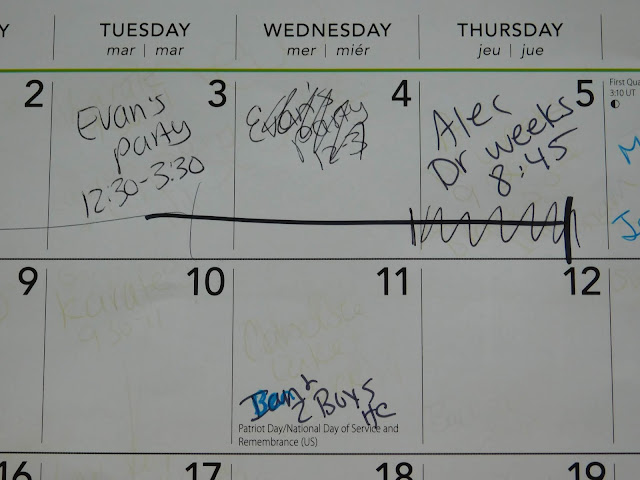 Y TUESDAY WEDNESDAY THURSDAY
mar | mar mer | miér jeu | jue
2 3 4 5
First Qua
3:10 UT
Evan's
party
12:30-3:30
Evan's
party
12-3
Alec
Dr weeks
8:45
9 10 11 12
Karate
9:30-11
2 Boys
HC
Patriot Day/National Day of Service and
Remembrance (US)
16 17 18 19